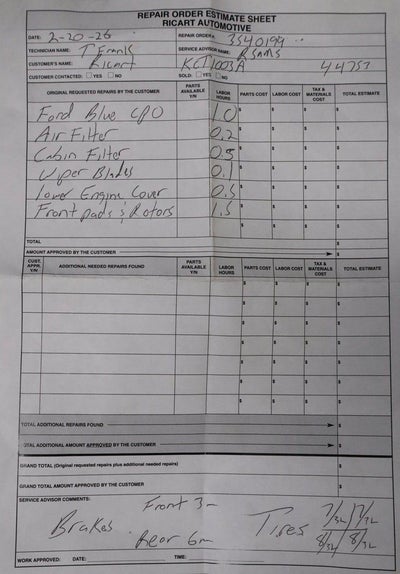 REPAIR ORDER ESTIMATE SHEET
RICART AUTOMOTIVE
DATE: 2-20-26 REPAIR ORDER #: 3540199
TECHNICIAN NAME: T Franks SERVICE ADVISOR NAME: R Sams
CUSTOMER'S NAME: Ricart KCT1003A 44753
CUSTOMER CONTACTED: YES NO SOLD: YES NO
ORIGINAL REQUESTED REPAIRS BY THE CUSTOMER PARTS AVAILABLE Y/N LABOR HOURS PARTS COST LABOR COST TAX & MATERIALS COST TOTAL ESTIMATE
Ford Blue CPO 1.0 $ $ $ $
Air Filter 0.2 $ $ $ $
Cabin Filter 0.5 $ $ $ $
Wiper Blades 0.1 $ $ $ $
Lower Engine Cover 0.5 $ $ $ $
Front pads & Rotors 1.5 $ $ $ $
TOTAL $
AMOUNT APPROVED BY THE CUSTOMER $
CUST. APPR. Y/N ADDITIONAL NEEDED REPAIRS FOUND PARTS AVAILABLE Y/N LABOR HOURS PARTS COST LABOR COST TAX & MATERIALS COST TOTAL ESTIMATE
$ $ $ $
$ $ $ $
$ $ $ $
$ $ $ $
$ $ $ $
$ $ $ $
$ $ $ $
TOTAL ADDITIONAL REPAIRS FOUND $
TOTAL ADDITIONAL AMOUNT APPROVED BY THE CUSTOMER $
GRAND TOTAL (Original requested repairs plus additional needed repairs) $
GRAND TOTAL AMOUNT APPROVED BY THE CUSTOMER $
SERVICE ADVISOR COMMENTS:
Front 3m 7/32 7/32
Brakes Tires
Rear 6m 8/32 8/32
WORK APPROVED: DATE: TIME: